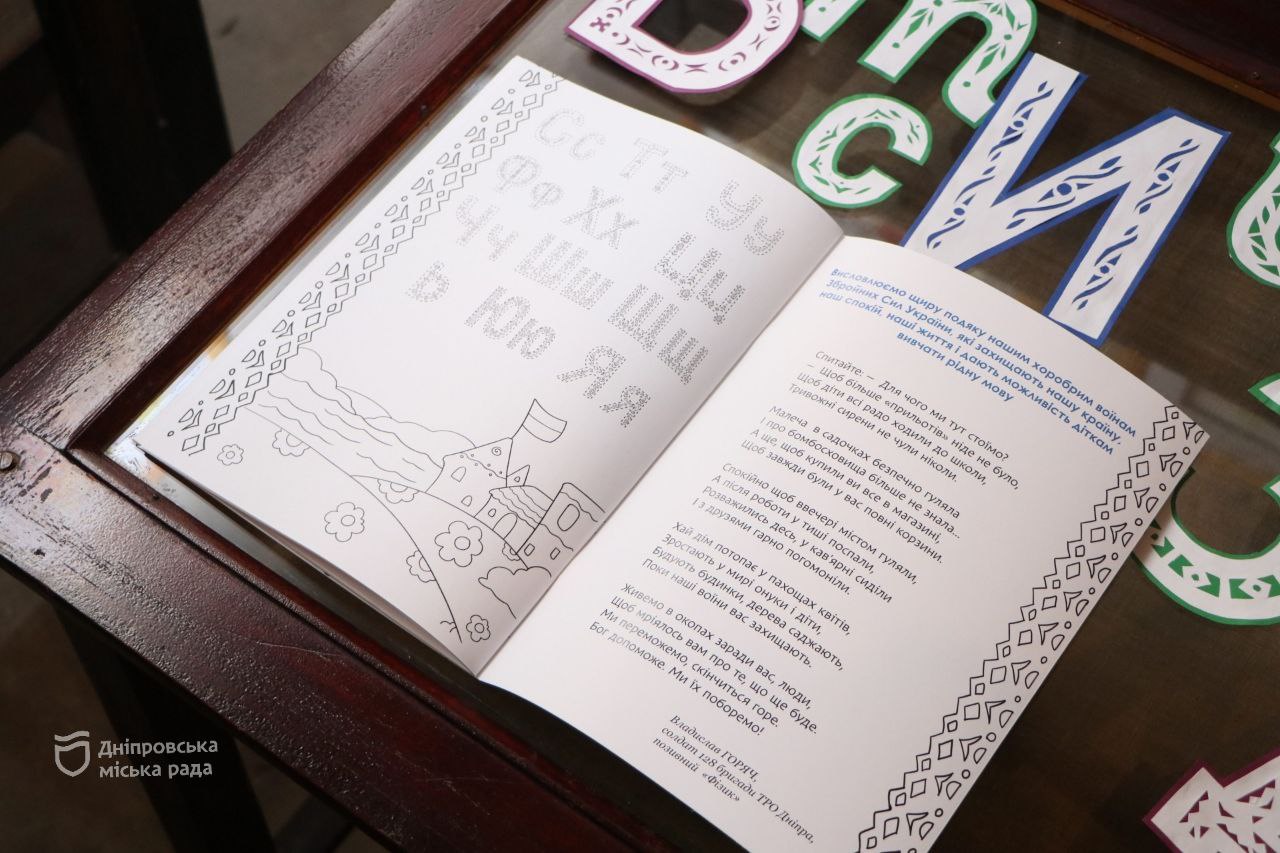 D
т
с
И
Сс Тт Уу
Фф Хх Цц
Чч Шш Щщ
Ь Юю Яя
Висловлюємо щиру подяку нашим хоробрим воїнам
Збройних Сил України, які захищають нашу країну,
наш спокій, наші життя і дають можливість діткам
вивчати рідну мову
Спитайте: – Для чого ми тут стоїмо?
– Щоб більше «прильотів» ніде не було,
Щоб діти всі радо ходили до школи,
Тривожні сирени не чули ніколи.
Малеча в садочках безпечно гуляла
І про бомбосховища більше не знала...
А ще, щоб купили ви все в магазині,
Щоб завжди були у вас повні корзини.
Спокійно щоб ввечері містом гуляли,
А після роботи у тиші поспали,
Розважились десь, у кав'ярні сиділи
І з друзями гарно погомоніли.
Хай дім потопає у пахощах квітів,
Зростають у мирі онуки і діти,
Будують будинки, дерева саджають,
Поки наші воїни вас захищають.
Живемо в окопах заради вас, люди,
Щоб мріялось вам про те, що ще буде.
Ми переможемо, скінчиться горе.
Бог допоможе. Ми їх поборемо!
Владислав ГОРЯЧ,
солдат 128 бригади ТРО Дніпра,
позивний «Фізик»
Дніпровська
міська рада